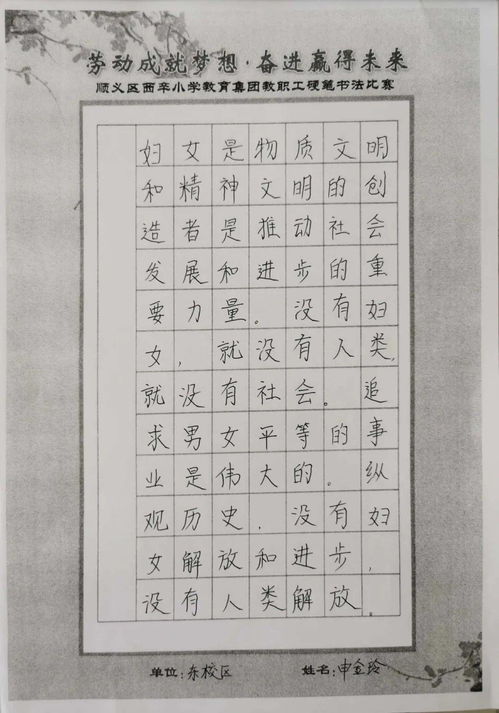 劳动成就梦想·奋进赢得未来
顺义区西辛小学教育集团教职工硬笔书法比赛
妇女是物质文明
和精神文明的创
造者是推动社会
发展和进步的重
要力量。没有妇
女,就没有人类,
就没有社会。追
求男女平等的事
业是伟大的。纵
观历史,没有妇
女解放和进步,
没有人类解放。
单位:东校区 姓名:申金玲